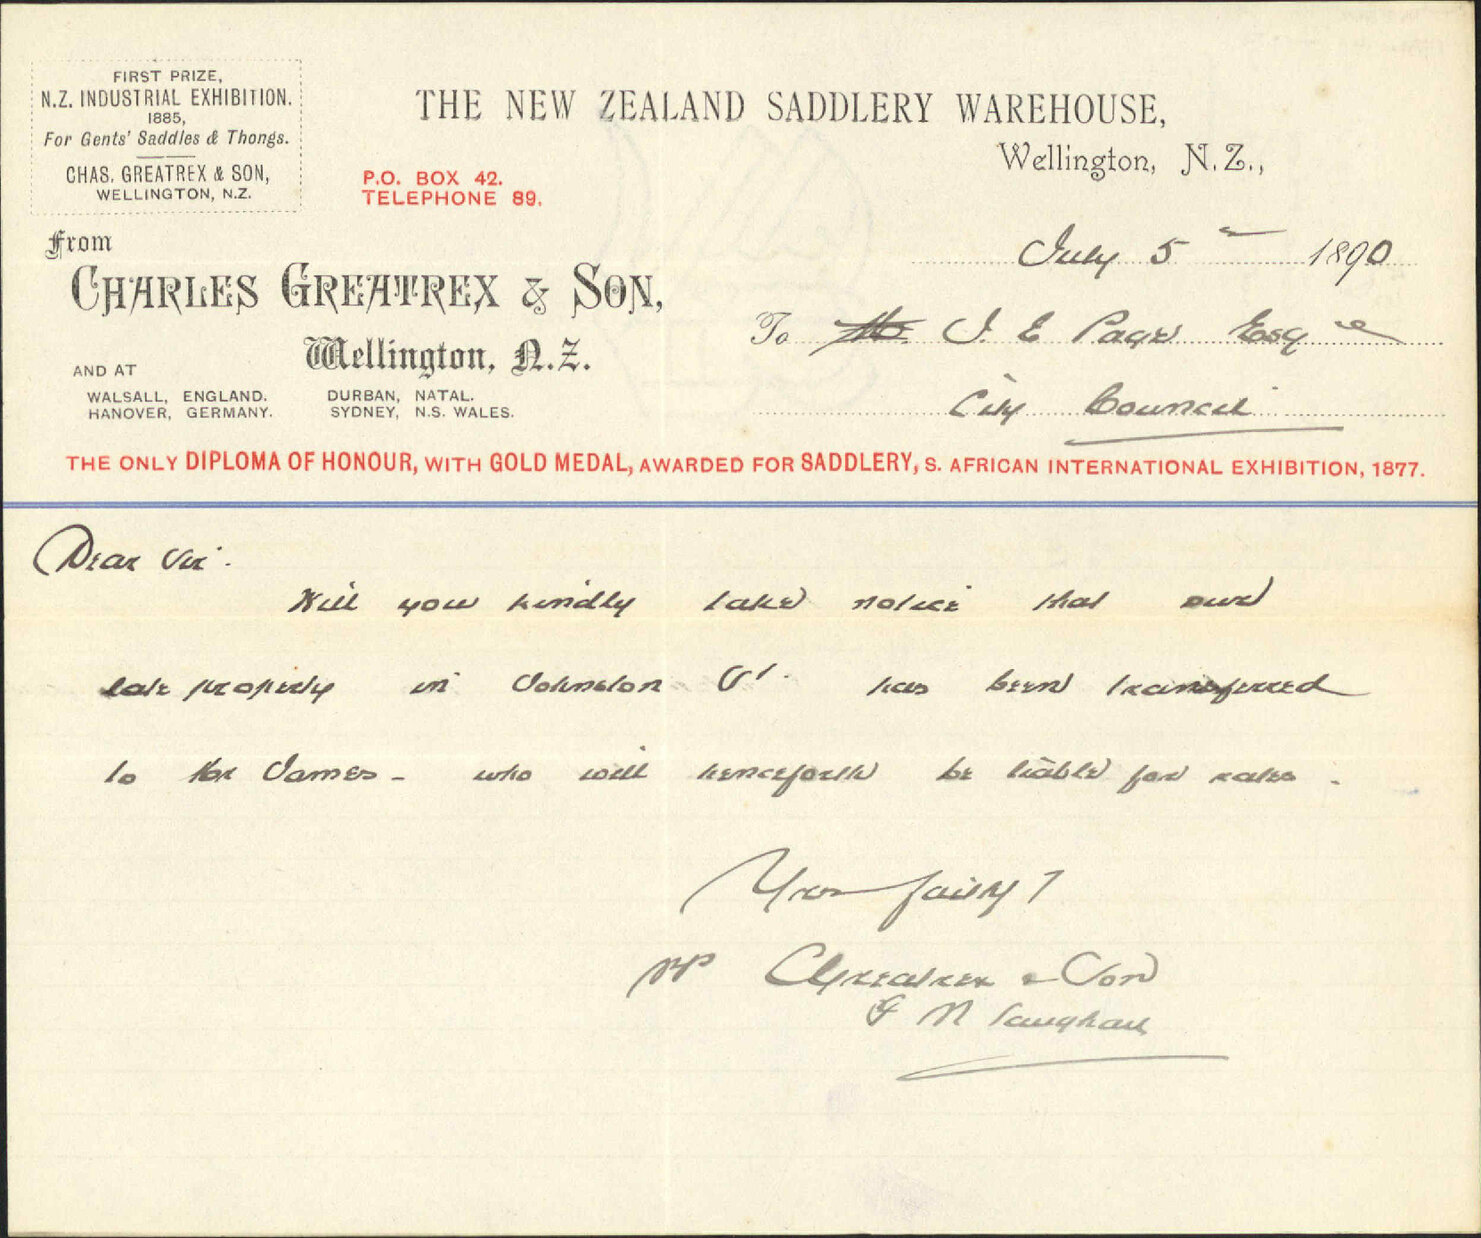 FIRST PRIZE,
N.Z. INDUSTRIAL EXHIBITION.
1885,
For Gents' Saddles & Thongs.
CHAS. GREATREX & SON,
WELLINGTON, N.Z.
THE NEW ZEALAND SADDLERY WAREHOUSE,
Wellington, N.Z.,
P.O. BOX 42.
TELEPHONE 89.
July 5 1890
From
CHARLES GREATREX & SON,
Wellington, N.Z.
To J. E. Page Esq
City Council
AND AT
WALSALL, ENGLAND. DURBAN, NATAL.
HANOVER, GERMANY. SYDNEY, N.S. WALES.
THE ONLY DIPLOMA OF HONOUR, WITH GOLD MEDAL, AWARDED FOR SADDLERY, S. AFRICAN INTERNATIONAL EXHIBITION, 1877.
Dear Sir.
Will you kindly take notice that our
late property in Johnston St. has been transferred
to Mr James - who will henceforth be liable for rates.
Yours faithy
pp C Greatrex & Son